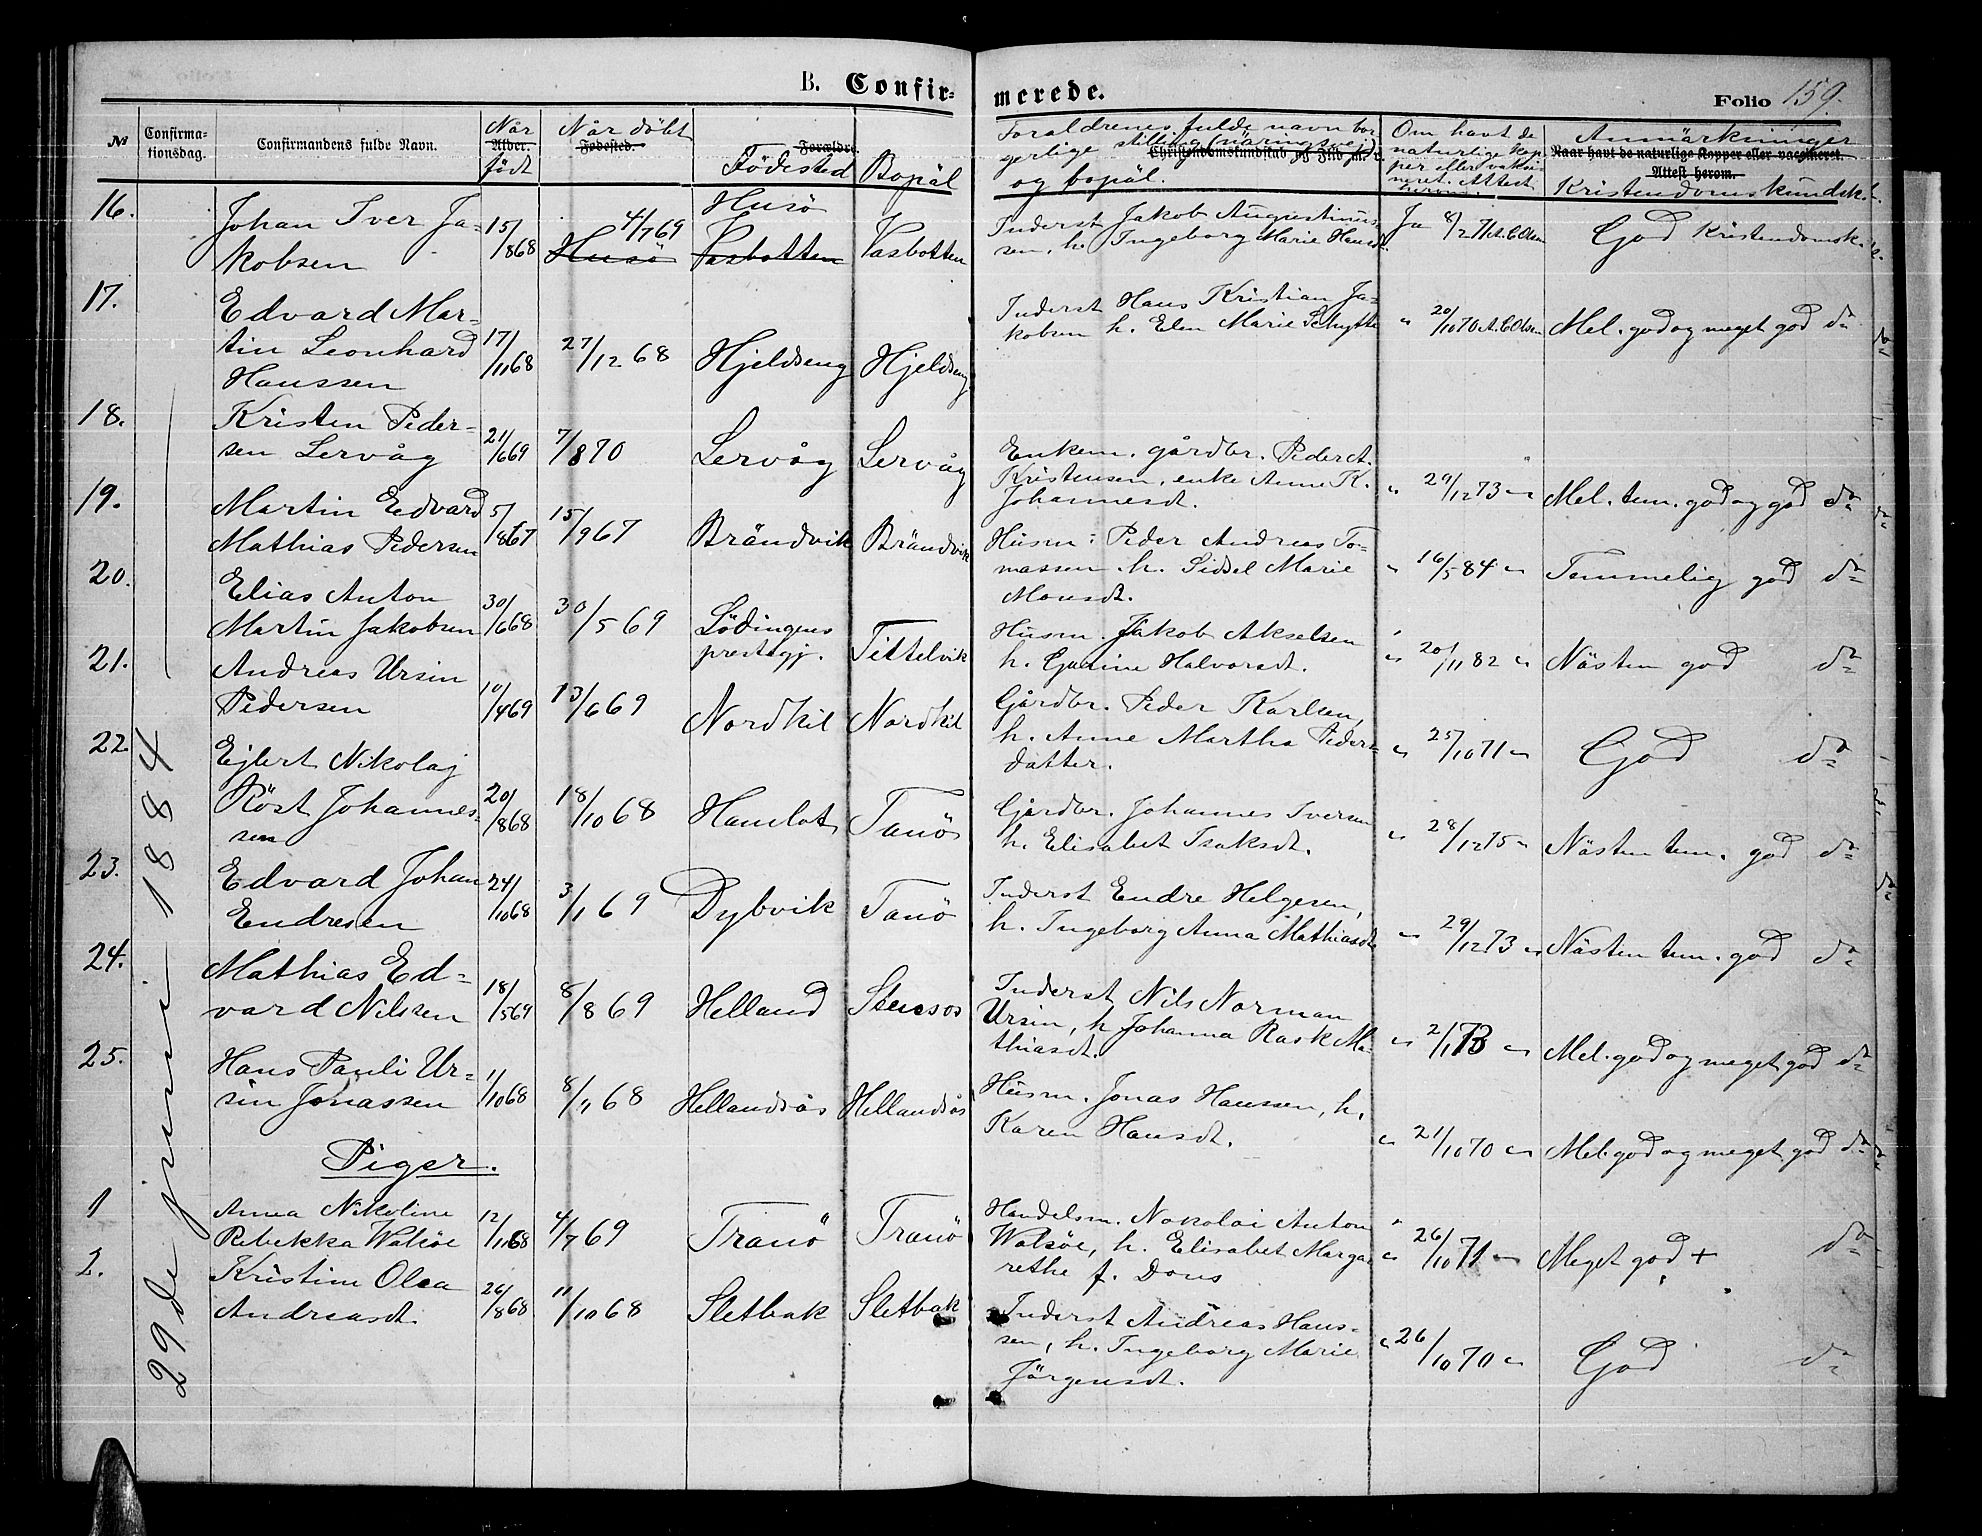 B. Confir-
merede.
Folio 159.
№ Confirma-
tionsdag. Confirmandens fulde Navn. Når
Alder.
født Når döbt
Fødested. Forældre.
Födested Bopäl
Foraldrenes fulde navn bor-
gerlige stilling (näringsvei)
Christendomskundskab og Flid m. v.
og bopäl.
Om havt de
naturlige kop
per eller vaksi
neret. Attest
herom.
Anmärkninger
Naar havt de naturlige Kopper eller vaccineret.
Attest herom.
Kristendomskundsk.
29de juni 1884
16. Johan Iver Ja-
kobsen 15/868 4/769 Husö Husö
Vasbotten Vasbotten Inderst Jakob Augustinus-
sen, h. Ingeborg Marie Hansdt. Ja 8/271 A. C Olsen God Kristendomsk.
17. Edvard Mar-
tin Leonhard
Hanssen 17/1168 27/12 68 Hjeldseng Hjeldseng Inderst Hans Kristian Ja-
kobsen h. Elen Marie Schytte " 20/1070 A. C Olsen Mel. god og meget god do
18. Kristen Peder-
sen Lervåg 21/669 7/870 Lervåg Lervåg Enkem. gårdbr. Peder A.
Kristensen, enke Anne K.
Johannesdt. " 29/1273 " Mel. tem. god og god do
19. Martin Edvard
Mathias Pedersen 5/867 15/967 Brändvik Brändvik Husm: Peder Andreas To-
massen h. Sidsel Marie
Monsdt. " 16/584 " Temmelig god do
20. Elias Anton
Martin Jakobsen 30/668 30/569 Lödingens
prestegj. Tittelvik Husm. Jakob Akselsen
h. Gurine Halvorsdt. " 20/1182 " Nästen god do
21. Andreas Ursin
Pedersen 10/469 13/669 Nordkil Nordkil Gårdbr. Peder Karlsen,
h. Anne Martha Peders-
datter. " 25/1071 " God do
22. Ejlert Nikolaj
Röst Johannes-
sen 20/868 18/1068 Hamlot Tanö Gårdbr. Johannes Iversen
h. Elisabet Isaksdt. " 28/1275 " Nästen tem. god do
23. Edvard Johan
Endresen 24/1068 3/169 Dybvik Tanö Inderst Endre Helgesen,
h. Ingeborg Anna Mathiasdt. " 29/1273 " Nästen tem. god do
24. Mathias Ed-
vard Nilssen 18/569 8/869 Helland Stensos Inderst Nils Norman
Ursin, h. Johanna Rask Ma-
thiasdt. " 2/173 " Mel. god og meget god do
25. Hans Pauli Ur-
sin Jonassen 1/1068 8/1168 Hellandsös Hellandsös Husm. Jonas Hanssen, h.
Karen Hansdt. " 21/1070 " Mel. god og meget god do
Piger.
1 Anna Nikoline
Rebekka Walsöe 12/1168 4/769 Tranö Tranö Handelsm. Nokolai Anton
Walsöe, h. Elisabet Marga-
rethe f. Dons " 26/1071 " Meget god + do
2. Kristine Olea
Andreasdt. 26/868 11/1068 Sletbak Sletbak Inderst Andreas Hans-
sen, h. Ingeborg Marie
Jörgensdt. " 26/1070 " God do